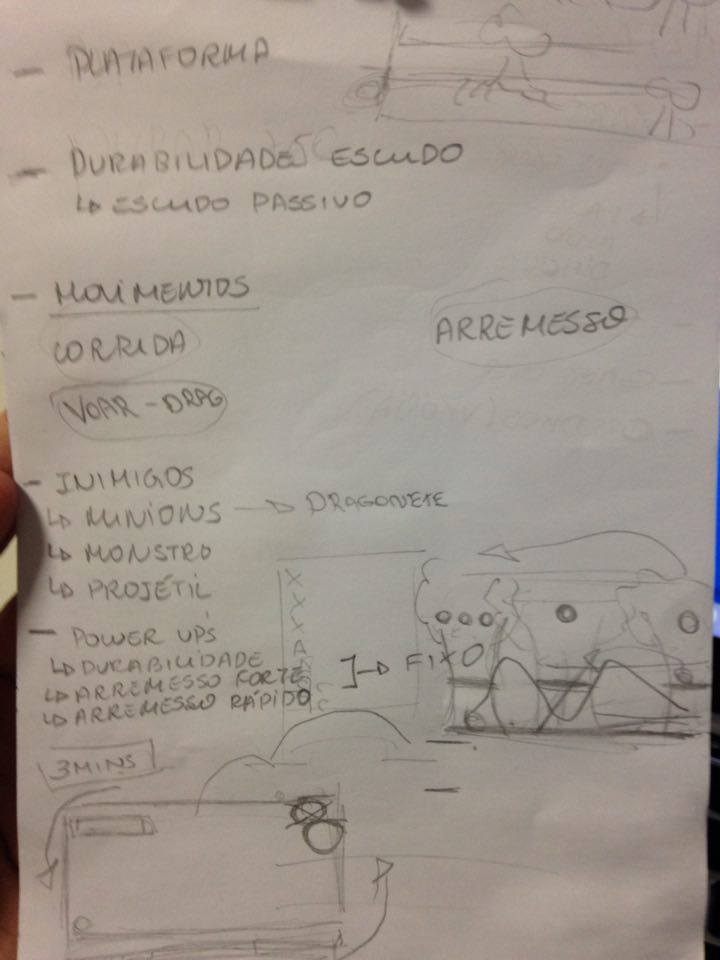 - PLATAFORMA
- DURABILIDADE ESCUDO
↳ ESCUDO PASSIVO
- MOVIMENTOS
CORRIDA
ARREMESSO
VOAR - DRAG
- INIMIGOS
↳ MINIONS → DRAGONETE
↳ MONSTRO
↳ PROJÉTIL
- POWER UPS
↳ DURABILIDADE
↳ ARREMESSO FORTE
↳ ARREMESSO RÁPIDO
] → FIXO
3 MINS